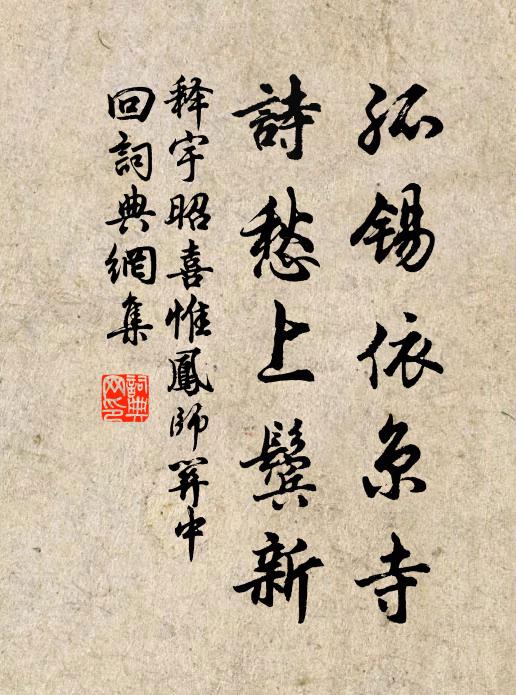 孤锡依京寺
詩愁上鬢新
释宇昭喜惟鳳師關中
回詞典網集
詞典
网印